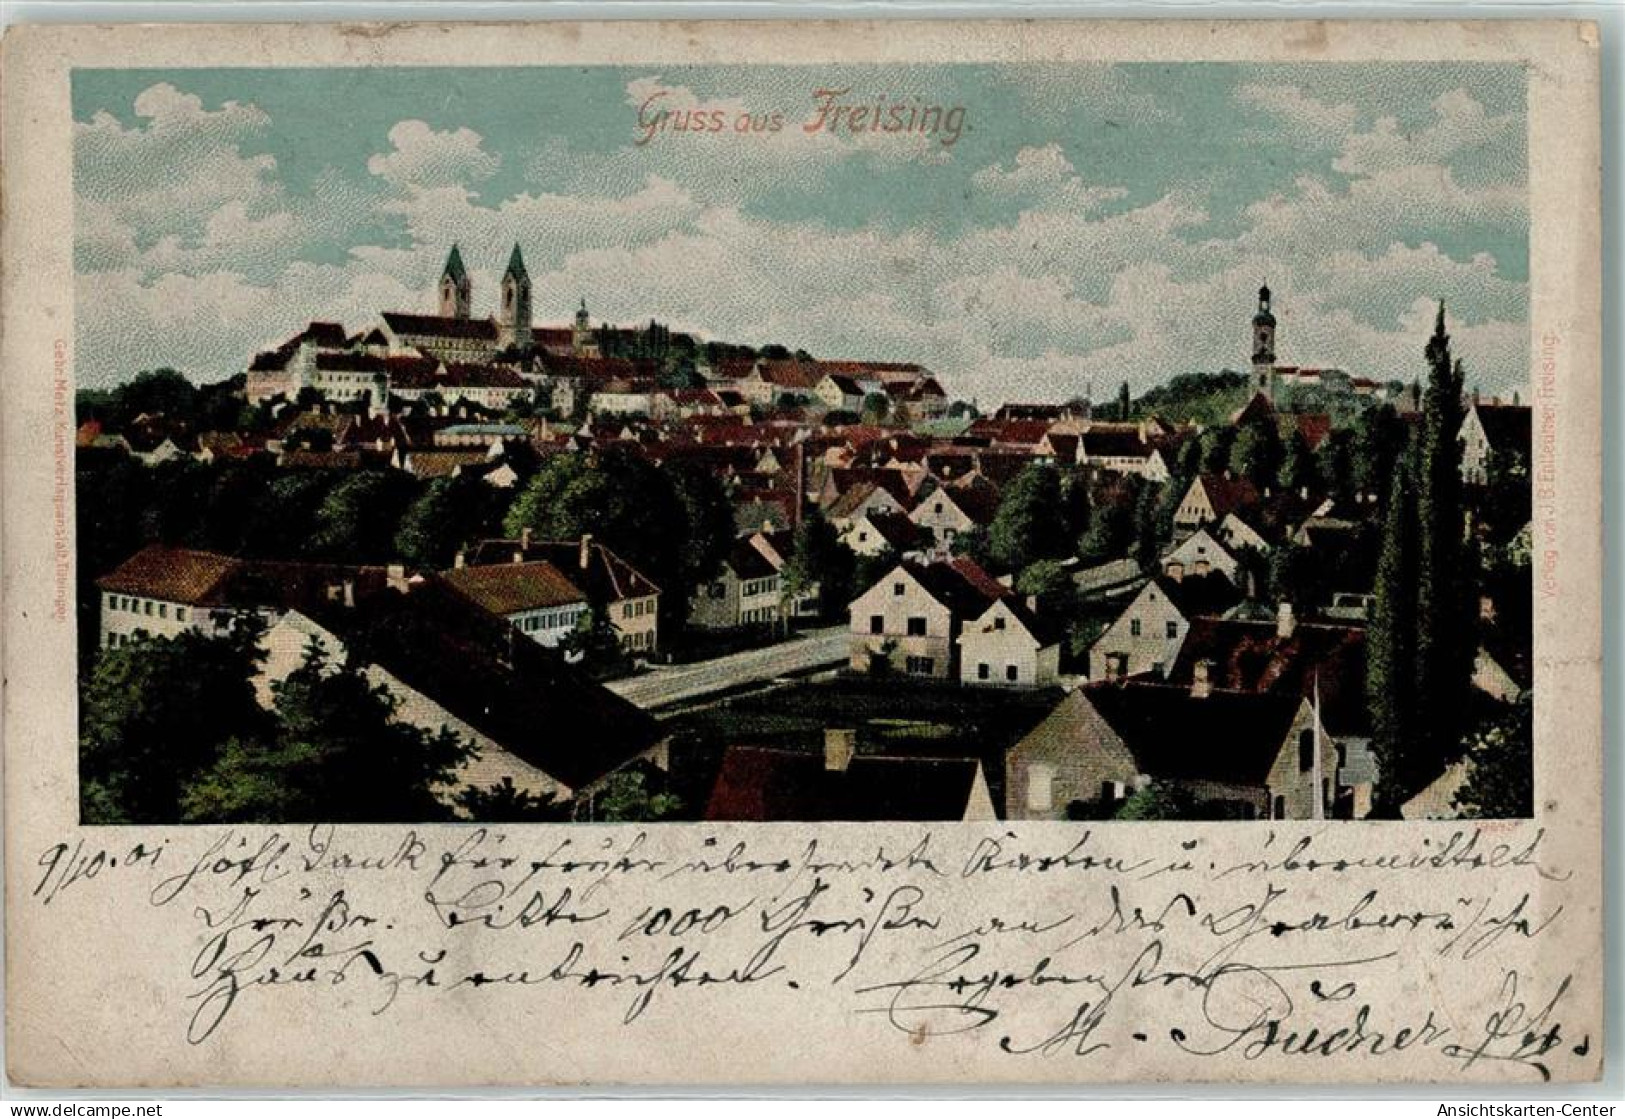 Gruss aus Freising.
Gebr. Metz, Kunstverlagsanstalt, Tübingen
Verlag von J. B. Entleutner, Freising.
9/10.01 Höfl. Dank für früher übersendete Karten u. übermittelte
Grüße. Bitte 1000 Grüße an das
Haus zu entrichten. Ergebenster
M. Büchner
delcampe.net
Ansichtskarten-Center